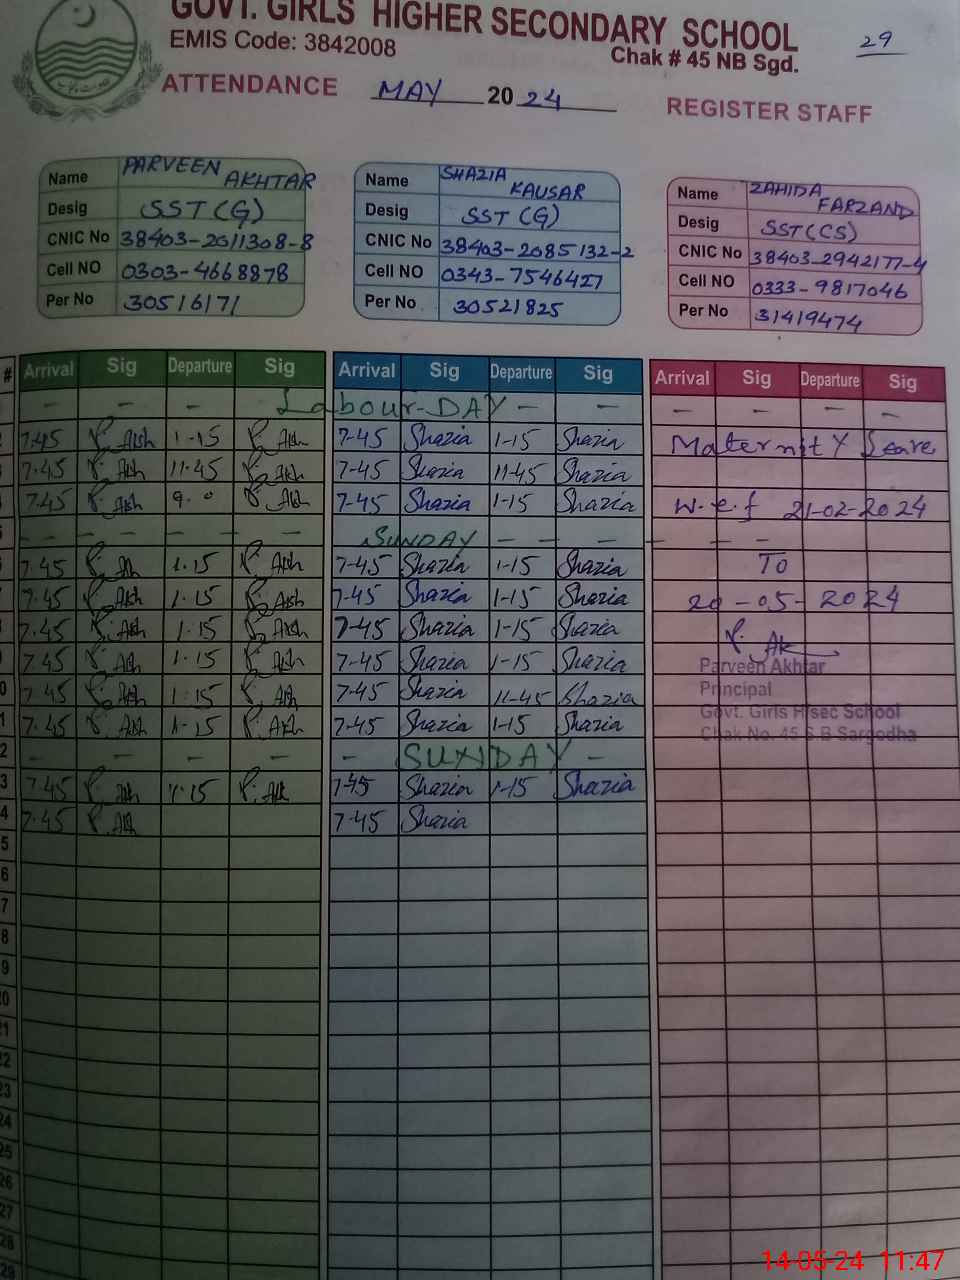 GOVT. GIRLS HIGHER SECONDARY SCHOOL
EMIS Code: 3842008
Chak # 45 NB Sgd.
29
ATTENDANCE MAY 2024 REGISTER STAFF
Name PARVEEN AKHTAR
Desig SST (G)
CNIC No 38403-2011308-8
Cell NO 0303-4668878
Per No 30516171
Name SHAZIA KAUSAR
Desig SST (G)
CNIC No 38403-2085132-2
Cell NO 0343-7546427
Per No 30521825
Name ZAHIDA FARZAND
Desig SST (CS)
CNIC No 38403-2942177-4
Cell NO 0333-9817046
Per No 31419474
# Arrival Sig Departure Sig Arrival Sig Departure Sig Arrival Sig Departure Sig
- - - Labour-DAY - - - - - -
2 7.45 P. Akh 1-15 P. Akh 7-45 Shazia 1-15 Shazia Maternity Leave
7.45 P. Akh 11.45 P. Akh 7-45 Shazia 11-45 Shazia
7.45 P. Akh 9.0 P. Akh 7-45 Shazia 1-15 Shazia w.e.f 21-02-2024
- - - - - - - SUNDAY - - - - - -
7.45 P. Akh 1.15 P. Akh 7-45 Shazia 1-15 Shazia To
7.45 P. Akh 1.15 P. Akh 7-45 Shazia 1-15 Shazia 20-05-2024
7.45 P. Akh 1.15 P. Akh 7-45 Shazia 1-15 Shazia P. Ak
7.45 P. Akh 1.15 P. Akh 7-45 Shazia 1-15 Shazia Parveen Akhtar
0 7.45 P. Akh 1.15 P. Akh 7-45 Shazia 11-45 Shazia Principal
1 7.45 P. Akh 1-15 P. Akh 7-45 Shazia 1-15 Shazia Govt. Girls H/sec School
Chak No. 45 S B Sargodha
2 - - - - - SUNDAY -
3 7.45 P. Akh 1.15 P. Akh 7-45 Shazia 1-15 Shazia
4 7.45 P. Akh 7-45 Shazia
5
6
7
8
9
20
21
22
23
24
25
26
27
28
29
14-05-24 11:47